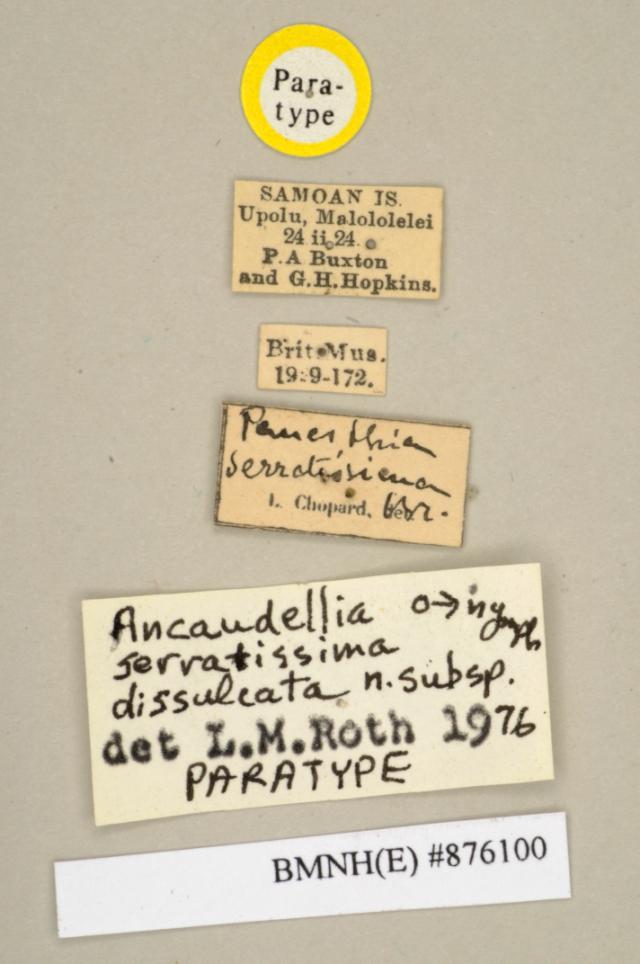 Para-
type
SAMOAN IS.
Upolu, Malololelei
24 ii 24.
P.A Buxton
and G.H.Hopkins.
Brit Mus.
1929-172.
Panesthia
serratissima
L. Chopard, det. Br.
Ancaudellia ♂ nymph
serratissima
dissulcata n.subsp.
det L.M.Roth 1976
PARATYPE
BMNH(E) #876100